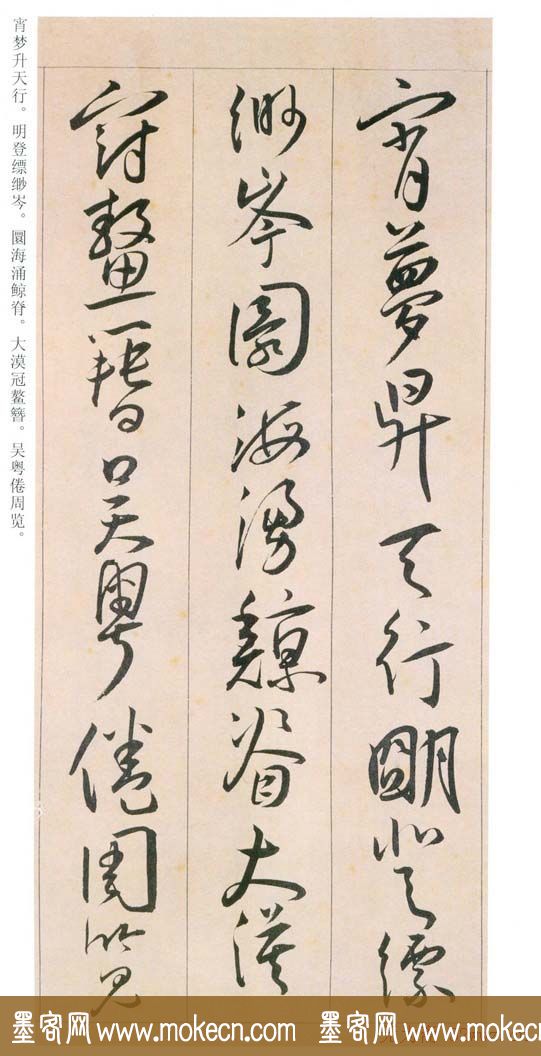 宵夢昇天行朙登縹
緲岑圜海涌鯨脊大漠
冠鼇簪吳粵倦周覽
宵梦升天行。明登缥缈岑。圜海涌鲸脊。大漠冠鳌簪。吴粤倦周览。
墨客网 www.mokecn.com 墨客网 www.mokecn.com